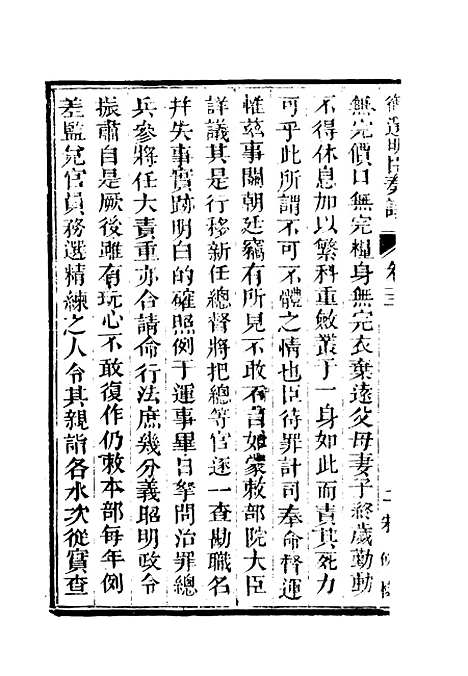 御選明臣奏議 卷三
無完價口無完糧身無完衣棄遠父母妻子終歲勤動
不得休息加以繁科重斂叢于一身如此而責其死力
可乎此所謂不可不體之情也臣待罪計司奉命督運
惟茲事關朝廷竊有所見不敢不言如蒙敕部院大臣
詳議其是行移新任總督將把總等官逐一查勘職名
并失事實跡明白的確照例于運事畢日拏問治罪總
兵參將任大責重亦合請命行法庶幾分義昭明政令
振肅自是厥後雖有玩心不敢復作仍敕本部每年例
差監兌官員務選精練之人令其親詣各水次從實查